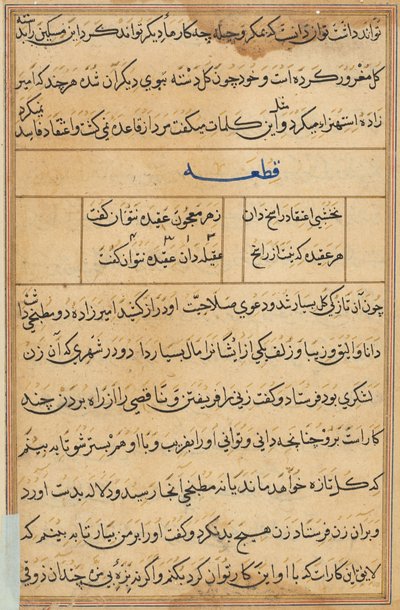 تواند دانست توان دانست که بمکر و حیله چه کارهاء دیگر تواند کرد این مسکین را بدسته
کل مغرور کرده است و خود چون کل دسته ببوی دیگران شده هر چند که امیر
زاده استهزاء میکرد و مثل این کلمات میکفت مرد از قاعده نمی کشت و اعتقاد فاسد نمیکرد
قطعه
نخشبی اعتقاد راسخ دان زهر معجون عقیده نتوان کفت
هر عقیده که نیست راسخ عقیله دان عقیده نتوان کفت
چون آن تازکی کل بسیار شد و دعوی صلاحیت او دراز کشید امیر زاده دو مطبخی داشت
دانا و الیق و زیبا و زلف یکی از ایشانرا مال بسیار داد و در شهری که آن زن
لشکری بود فرستاد و کفت زنی را فریفتن و ناقصی را از راه بردن چند
کار است برو چنانچه دانی و توانی او را بفریب و با او هم بستر شو تا به بینم
که کل تازه خواهد ماند یا نه مطبخی آنجا رسید و دلاله بدست آورد
و بر آن زن فرستاد زن هیچ بد نکرد و کفت او را بر من بیار تا به بینم که
لایق این کار است که با او این کار توان کرد یکنم و اکر نه پیره بی من چندان ذوقی